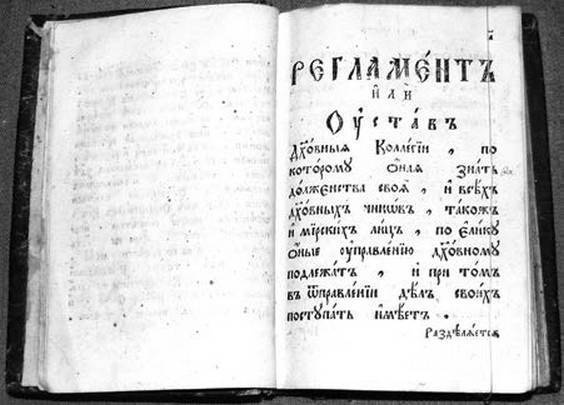 РЕГЛАМЕ́НТЪ
и҆лѝ
Оу҆ста́въ
Дꙋхо́вныѧ Коллегїи , по
кото́рому ѻ҆наѧ зна́ть
до́лженства своѧ̑ , и҆ всѣ́хъ
дꙋхо́вныхъ чинѡ́въ , тако́жъ
и мїрски́хъ ли́цъ , по Е҆ли́кꙋ
ѻ҆́ные ᲂу҆правле́нїю дꙋхо́вному
подлежа́тъ , и҆ при то́мъ
въ ѿправле́нїи дѣ́лъ свои́хъ
поступа́ть и҆мѣ́етъ .
Раздѣлѧ́етсѧ